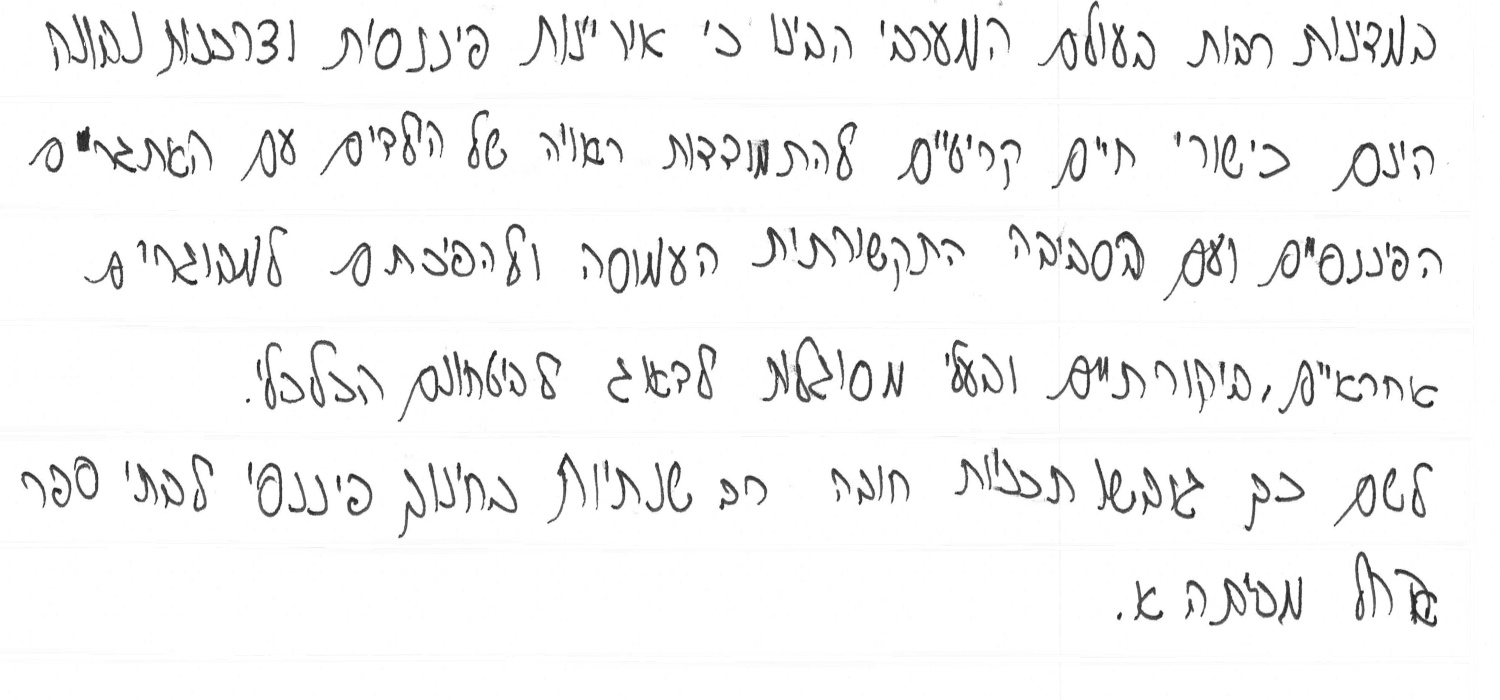 במדינות רבות בעולם המערבי הבינו כי אוריינות פיננסית וצרכנות נבונה
הינם כישורי חיים קריטיים להתמודדות ראויה של הילדים עם האתגרים
הפיננסיים ועם הסביבה התקשורתית העמוסה ולהפיכתם למבוגרים
אחראיים, ביקורתיים ובעלי מסוגלות לדאוג לביטחונם הכלכלי.
לשם כך גובשו תכניות חובה רב שנתיות בחינוך פיננסי לבתי ספר
החל מכיתה א.